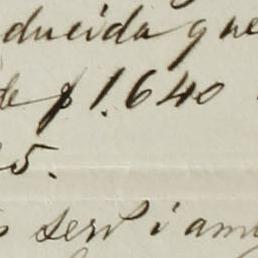 ducida que
de $1.640
5.
serl i am